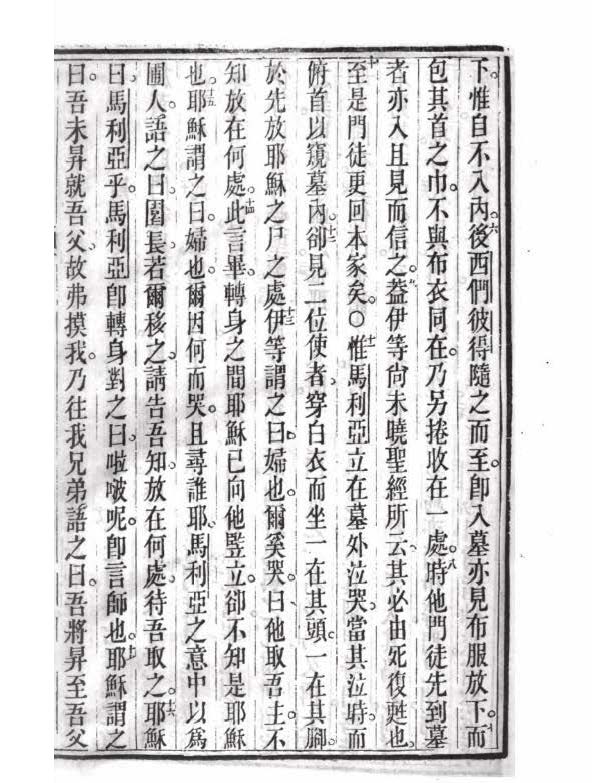 下。惟自不入內。六後西們彼得隨之而至。卽入墓亦見布服放下。七而
包其首之巾。不與布衣同在。乃另捲收在一處。八時他門徒先到墓
者亦入且見而信之。九蓋伊等尙未曉聖經所云、其必由死復甦也。
十至是門徒更回本家矣。○十一惟馬利亞立在墓外泣哭。當其泣時、而
俯首以窺墓內。十二卻見二位使者、穿白衣而坐一在其頭。一在其腳。
於先放耶穌之尸之處。十三伊等謂之曰。婦也。爾奚哭。曰他取吾主。不
知放在何處。十四此言畢、轉身之間耶穌已向他豎立。卻不知是耶穌
也。十五耶穌謂之曰。婦也。爾因何而哭。且尋誰耶。馬利亞之意中以爲
圃人。語之曰。園長、若爾移之、請告吾知放在何處、待吾取之。十六耶穌
曰。馬利亞乎。馬利亞卽轉身對之曰。啦啵呢。卽言師也。十七耶穌謂之
曰。吾未昇就吾父、故弗摸我。乃往我兄弟語之曰。吾將昇至吾父